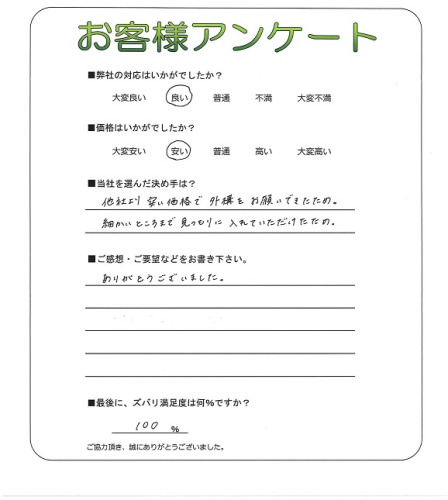 お客様アンケート
■弊社の対応はいかがでしたか？
大変良い 良い 普通 不満 大変不満
■価格はいかがでしたか？
大変安い 安い 普通 高い 大変高い
■当社を選んだ決め手は？
他社より安い価格で外構をお願いできたため。
細かいところまで見つもりに入れていただけたため。
■ご感想・ご要望などをお書き下さい。
ありがとうございました。
■最後に、ズバリ満足度は何％ですか？
100 ％
ご協力頂き、誠にありがとうございました。